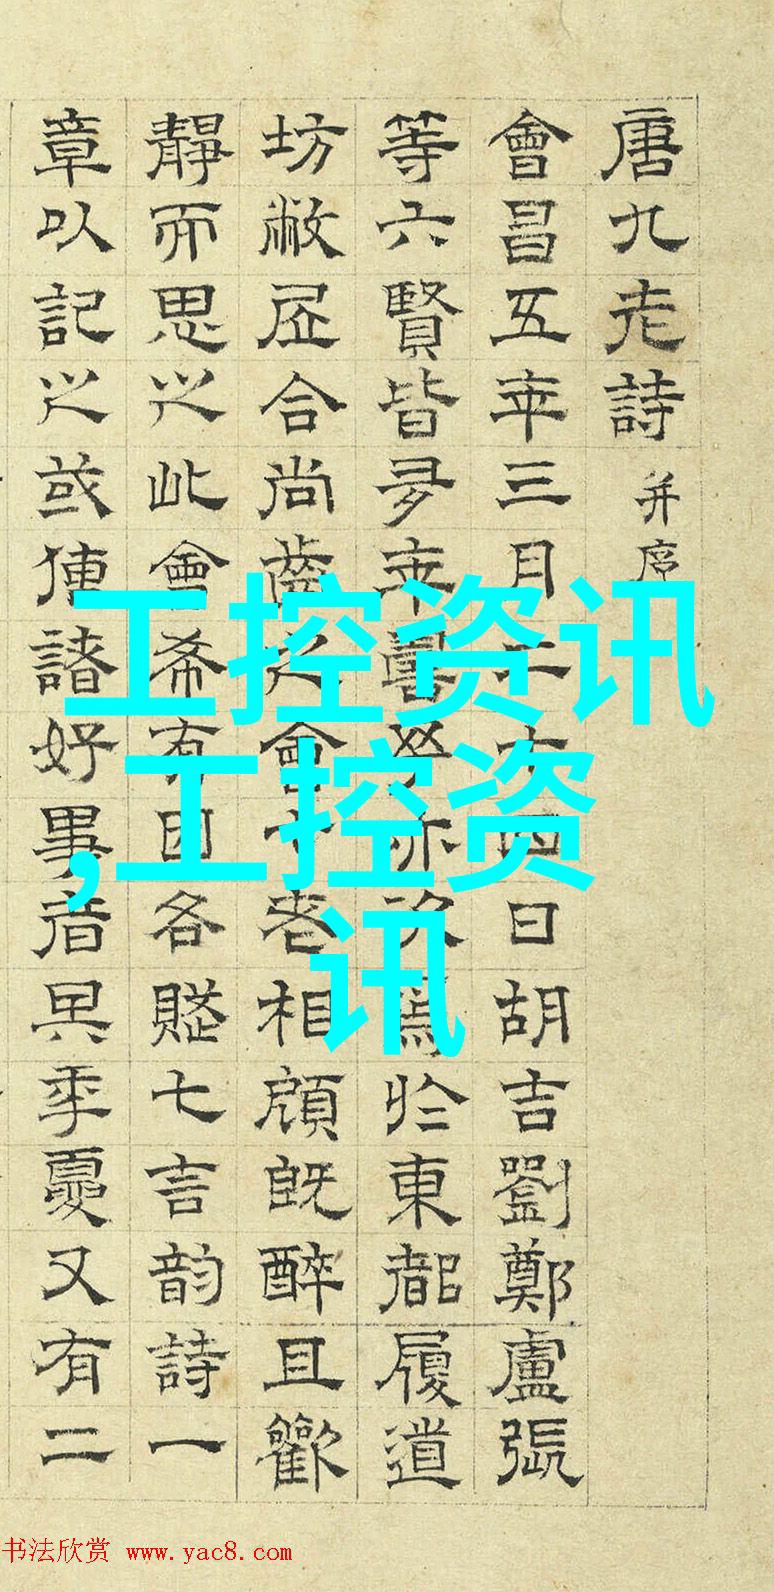 唐九老詩 并序
會昌五年三月二十四日胡吉劉鄭盧張
等六賢皆多年壽予亦次焉於東都履道
坊敝居合尚齒之會七老相顧既醉且歡
靜而思之此會希有因各賦七言韵詩一
章以記之或傳諸好事者其年夏又有二
工控资讯
,工控资
讯
书法欣赏 www.yac8.com